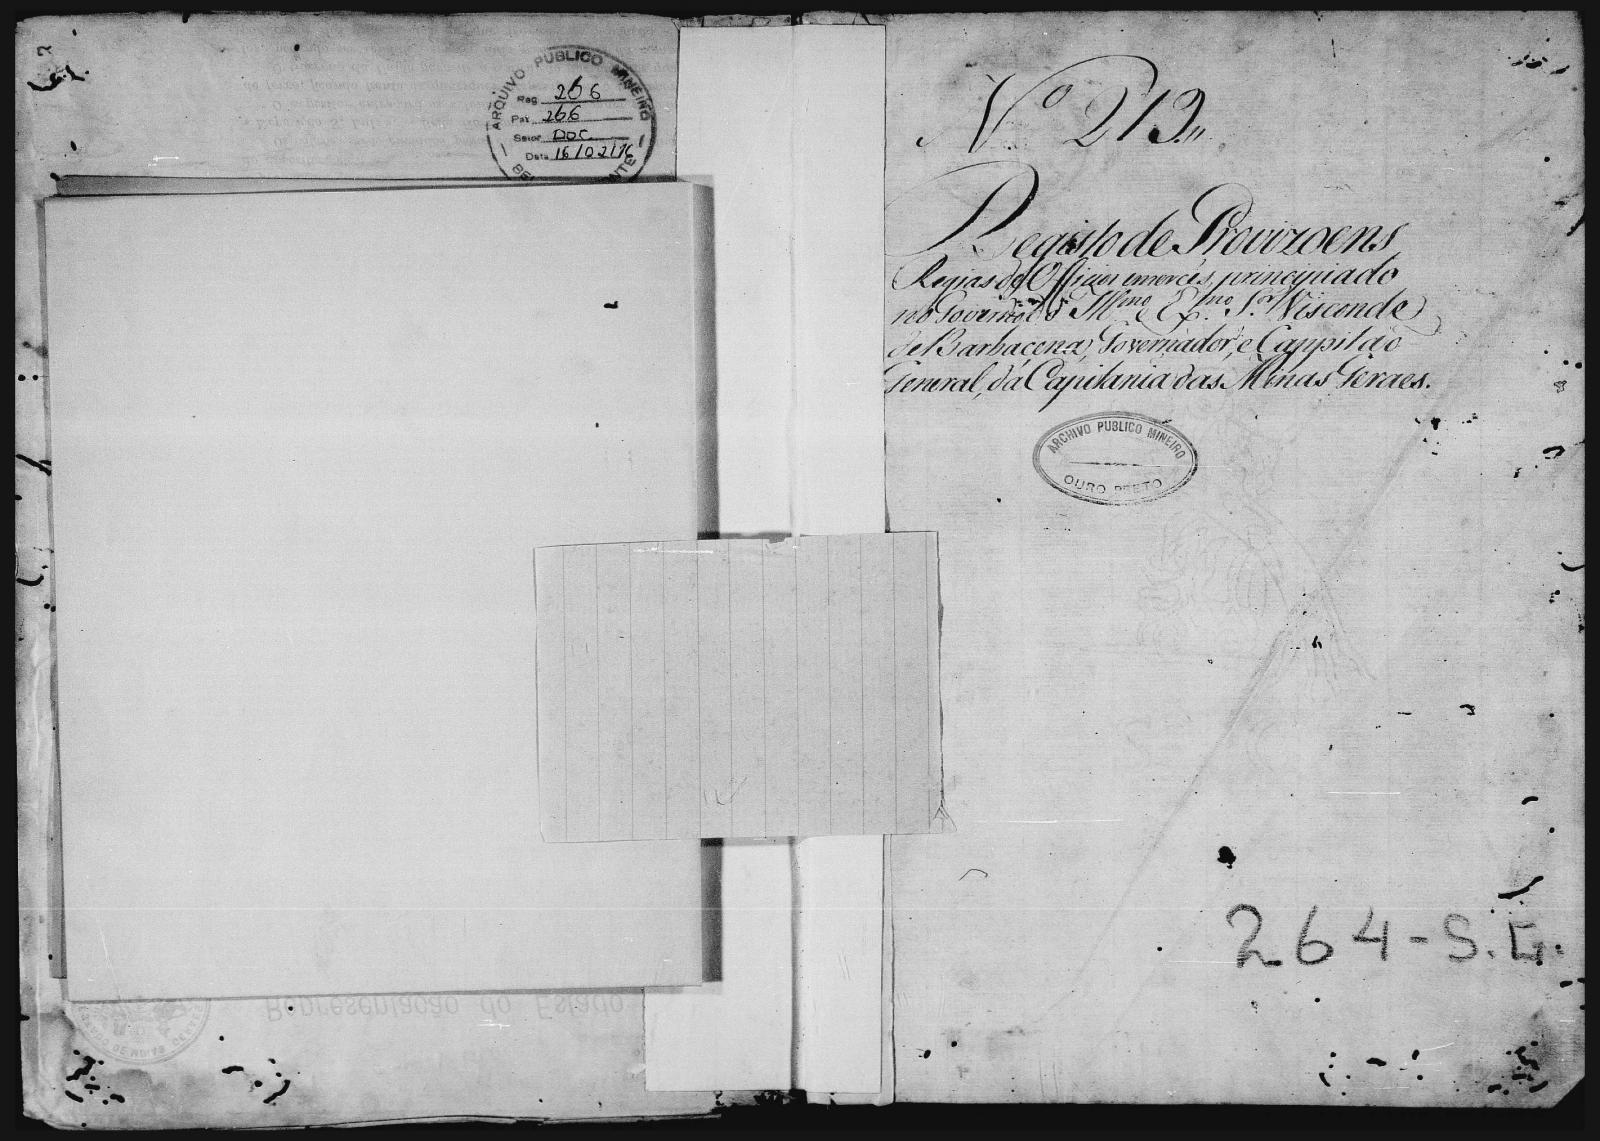 ARQUIVO PUBLICO MINEIRO
Reg 266
Pat 266
Setor DOC.
Data 16/02/76
Nº 213
Registo de Provizoens
Regias de Officios e mercês, principiado
no Governo do Illmo e Exmo Sr. Visconde
de Barbacena, Governador, e Cappitão
General, da Capitania das Minas Geraes.
ARCHIVO PUBLICO MINEIRO
OURO PRETO
264-S.G.
Representação do Estado